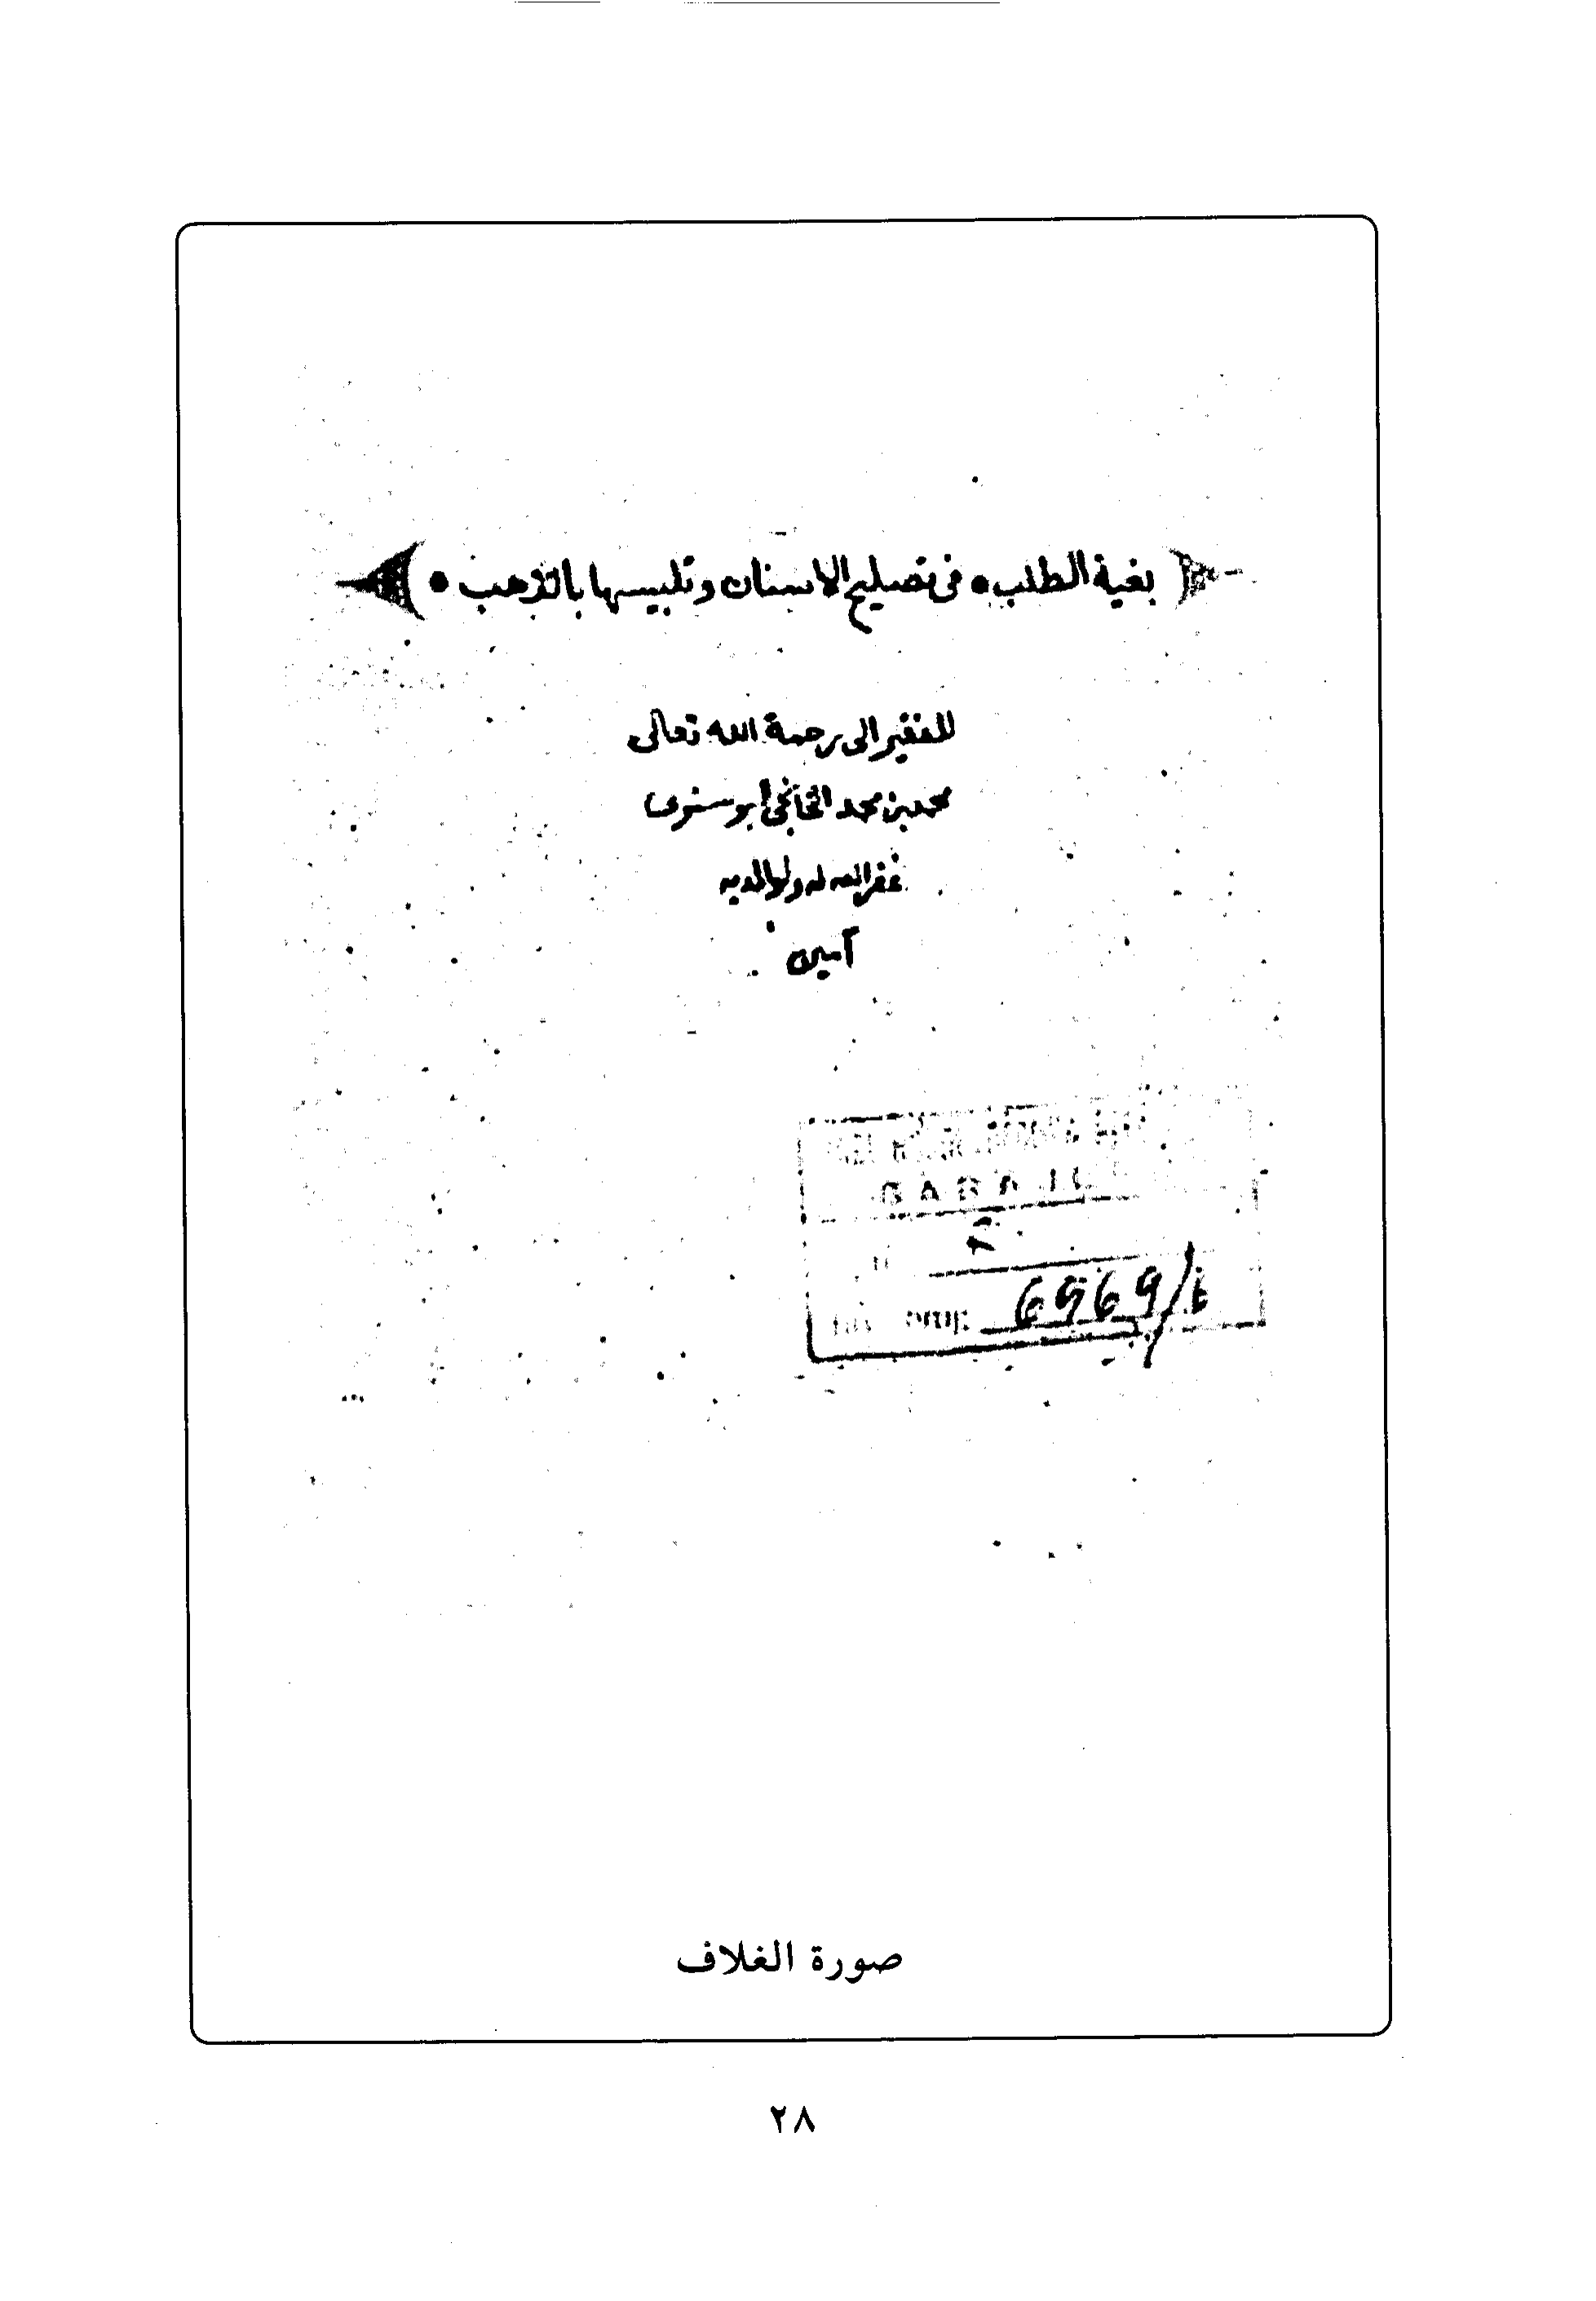 بغية الطلب • في تصليح الاسنان وتلبيسها بالذهب •
للفقير الى رحمة الله تعالى
محمد بن محمد الخانجي البوسنوي
غفر الله له ولوالديه
آمين
6969/
صورة الغلاف
٢٨